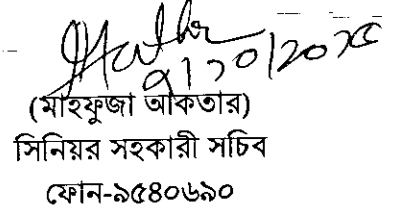 ৭/১০/২০১৫
(মাহফুজা আকতার)
সিনিয়র সহকারী সচিব
ফোন-৯৫৪০৬৯০